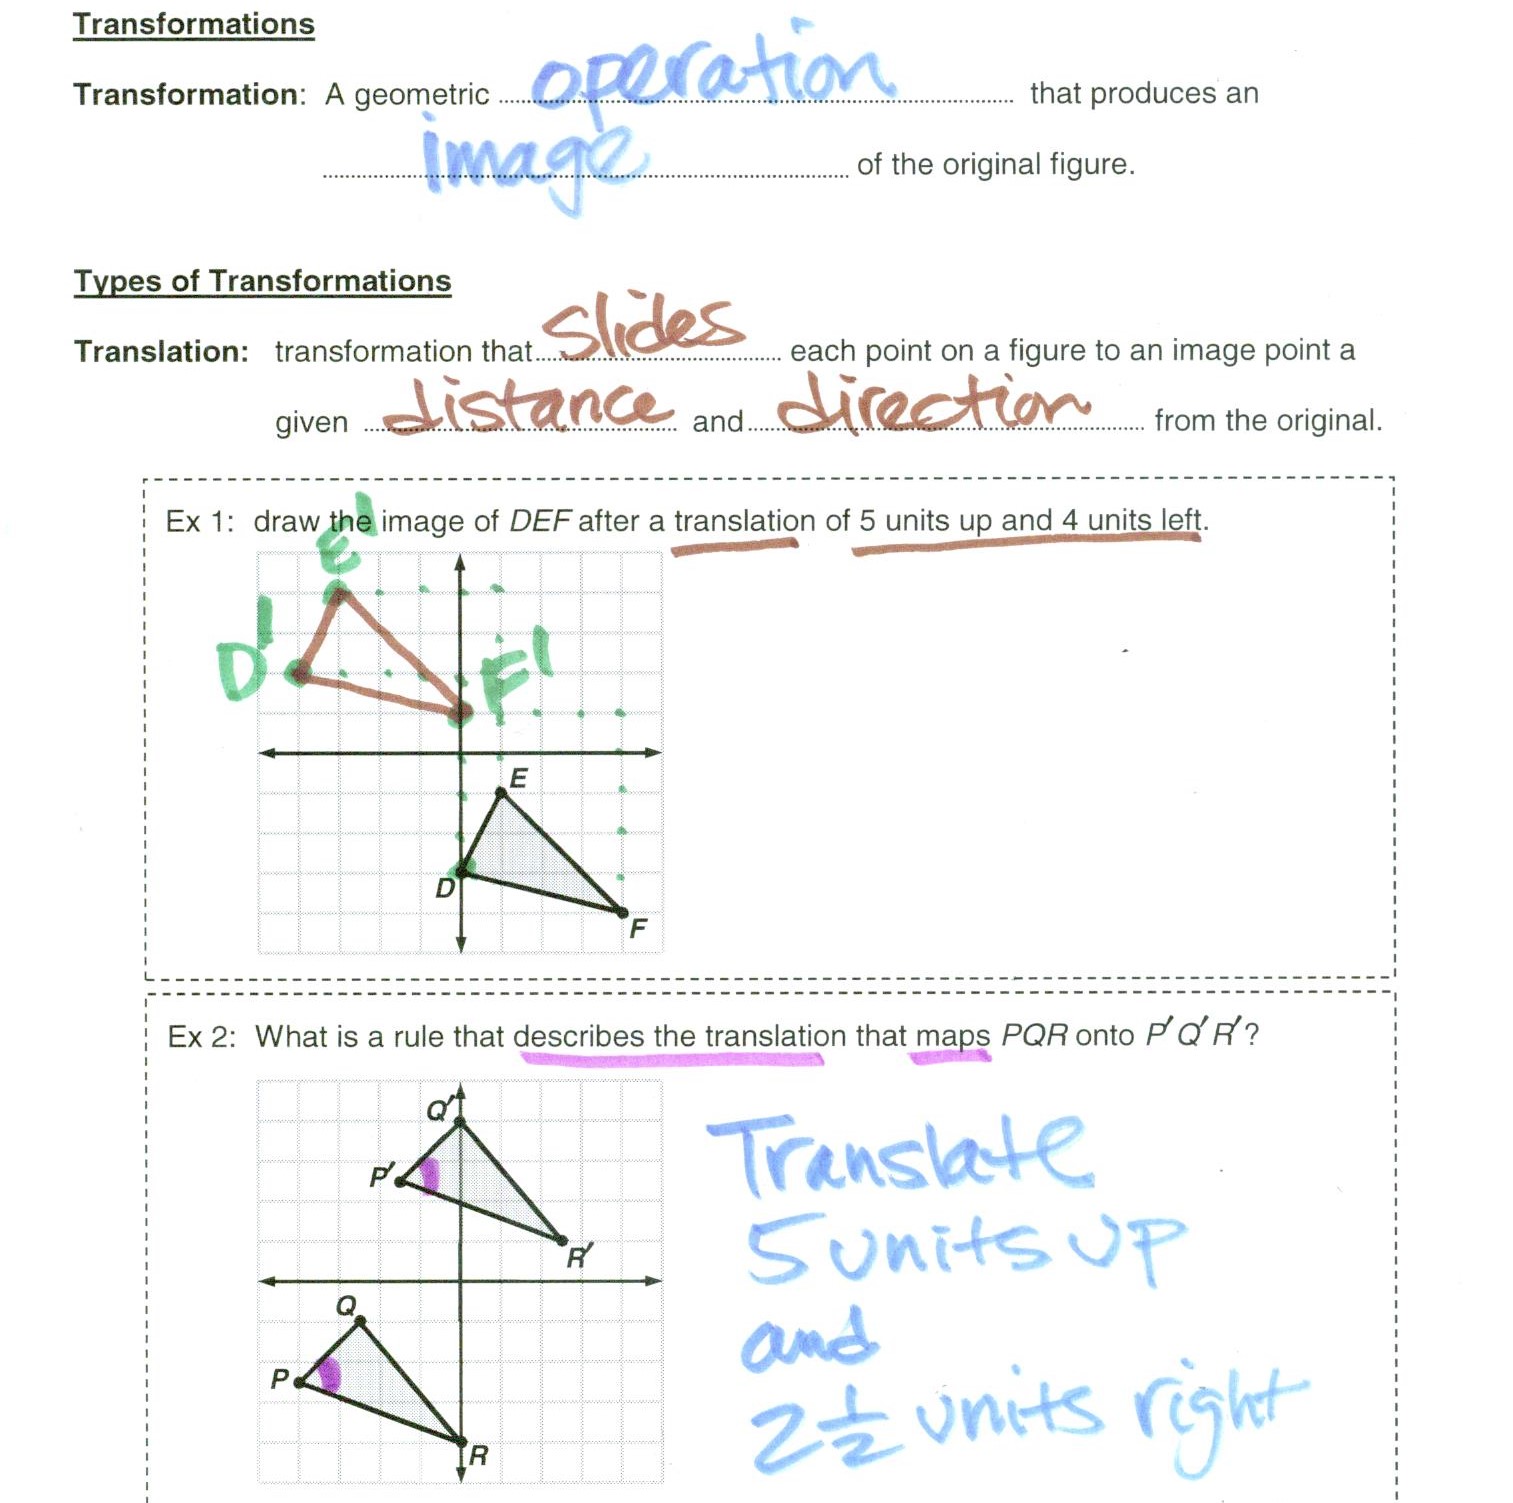 Transformations
Transformation: A geometric operation that produces an
image of the original figure.
Types of Transformations
Translation: transformation that slides each point on a figure to an image point a
given distance and direction from the original.
Ex 1: draw the image of DEF after a translation of 5 units up and 4 units left.
E'
D'
F'
E
D
F
Ex 2: What is a rule that describes the translation that maps PQR onto P'Q'R'?
Q'
P'
R'
Q
P
R
Translate
5 units up
and
2 1/2 units right